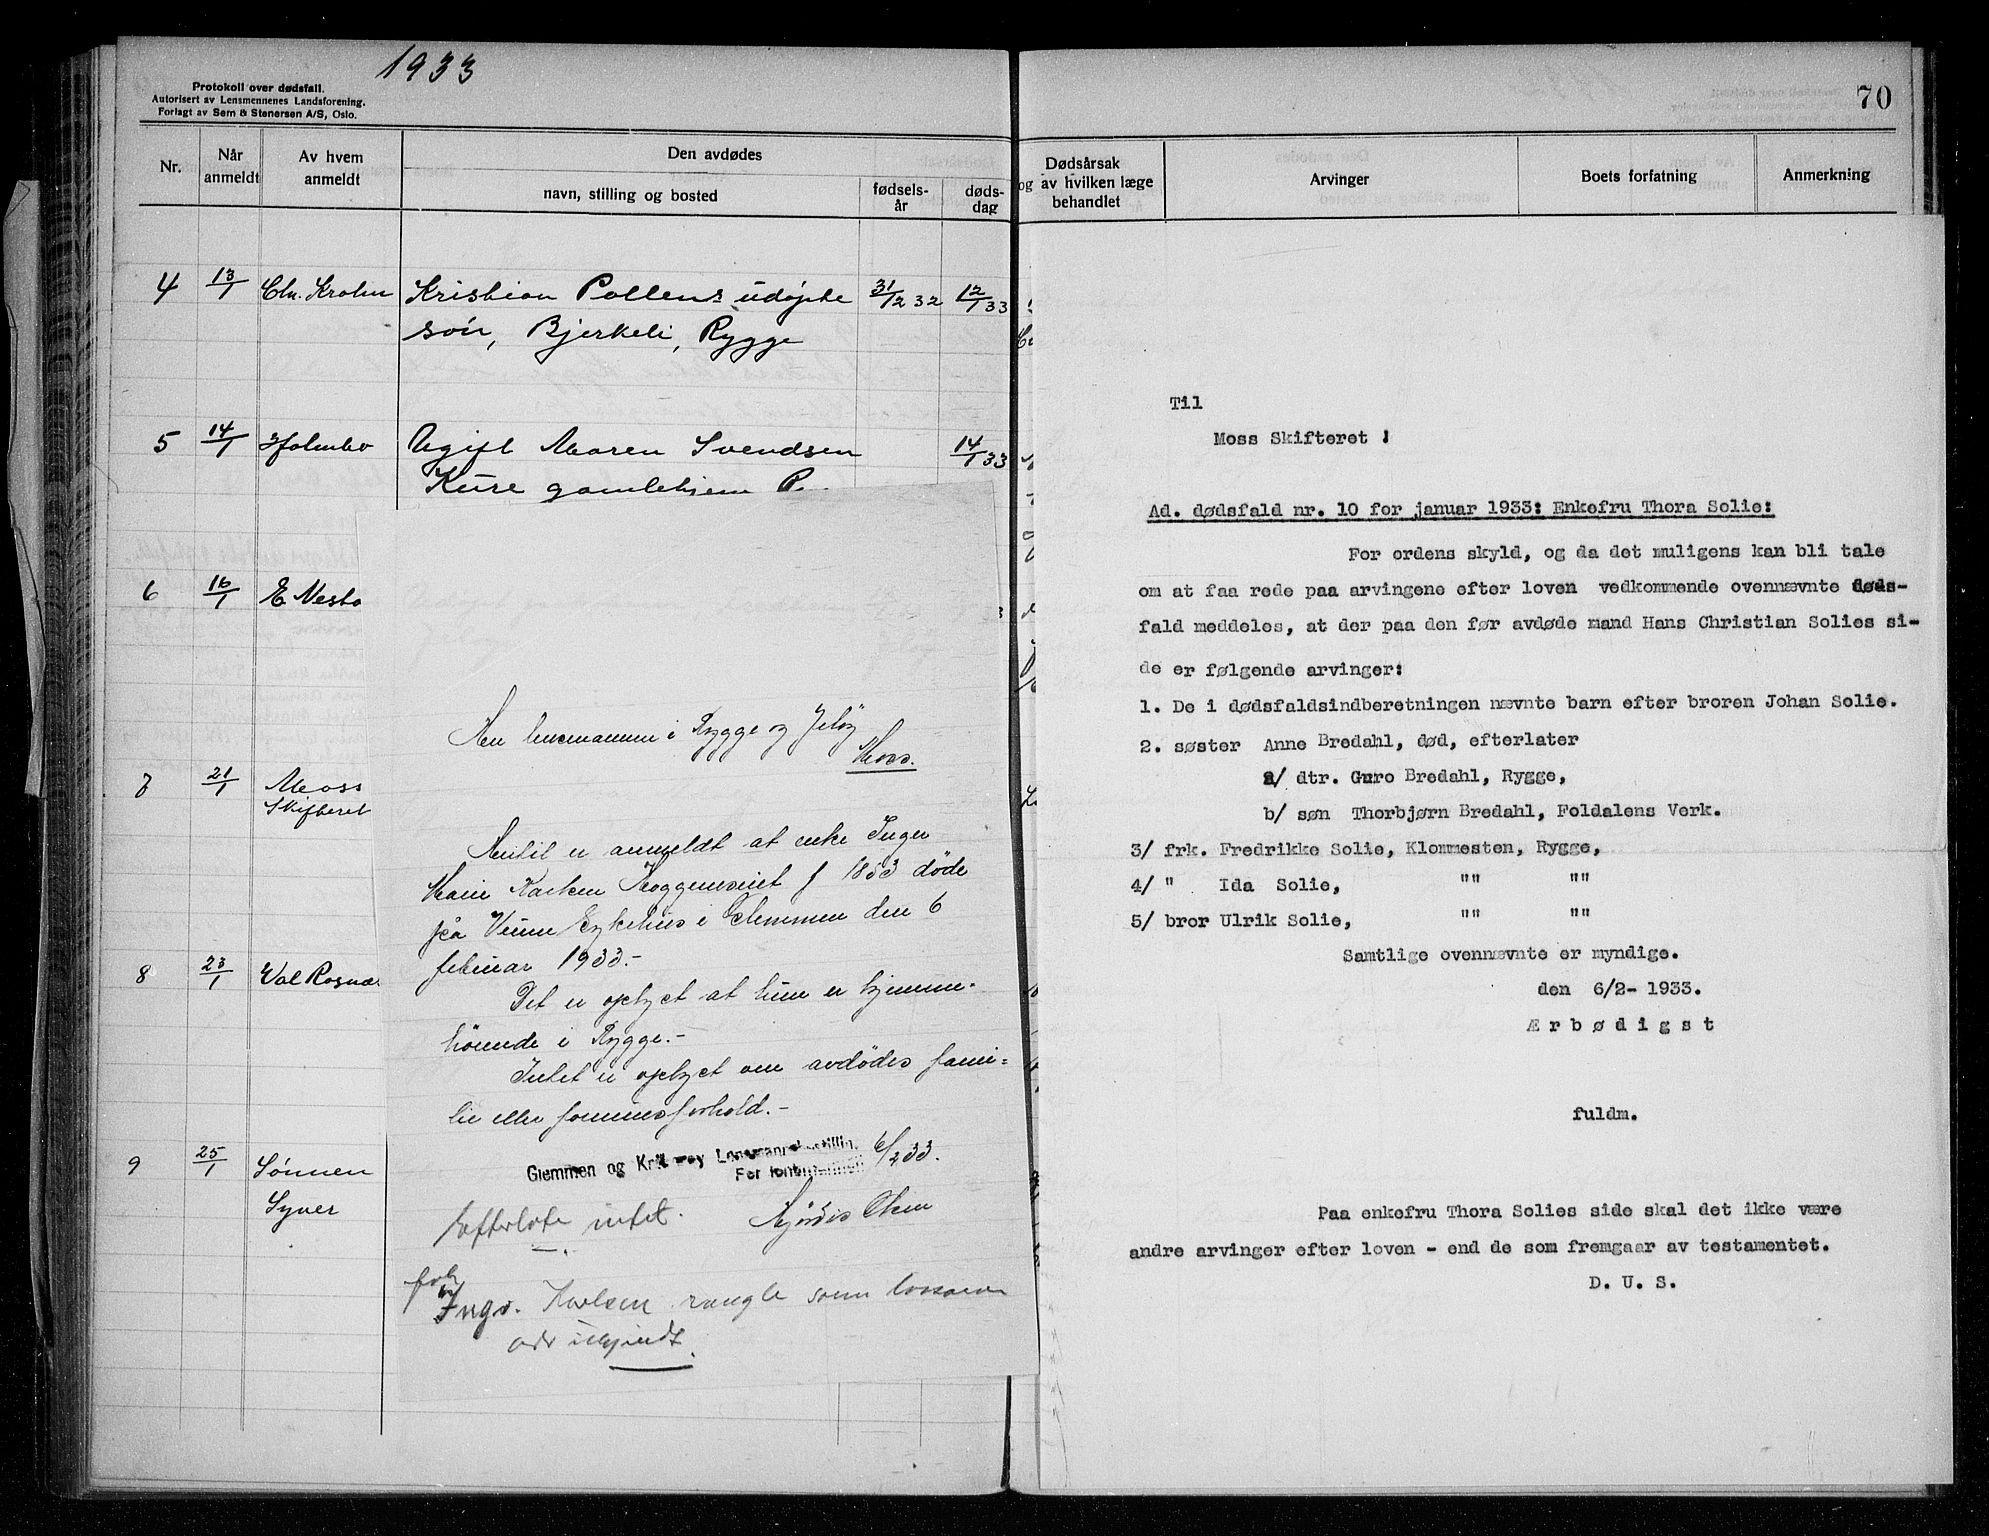 1933
Protokoll over dødsfall.
Autorisert av Lensmennenes Landsforening.
Forlagt av Sem & Stenersen A/S, Oslo.
Nr.
Når anmeldt
Av hvem anmeldt
Den avdødes
navn, stilling og bosted
fødsels-
år
døds-
dag
4 13/1 Chr. Krohn Kristian Pollens udøpte 31/12 32 12/1 33
søn, Bjerkeli, Rygge
5 14/1 Holmbo Ugift Maren Svendsen 14/1 33
Kure gamlehjem R.
6 16/1 E Nesbo
7 21/1 Moss
Skifteret
8 23/1 Val Rosnæs
9 25/1 Sønnen
Syver
Herr lensmannen i Rygge og Jeløy
Moss.
Hertil er anmeldt at enke Inger
Marie Karlsen f 1853 døde
på Veum Sykehus i Glemmen den 6
februar 1933.-
Det er oplyst at hun er hjemme-
hörende i Rygge.-
Intet er oplyst om avdödes fami-
lie eller formuesforhold.-
Glemmen og Lensmannsbestilling 6/2 33.
For lensmannen
Hjördis Olsen
Efterlate intet.
Ingv. Karlsen
70
Dødsårsak
og av hvilken læge
behandlet
Arvinger
Boets forfatning
Anmerkning
Til
Moss Skifteret !
Ad. dødsfald nr. 10 for januar 1933: Enkefru Thora Solie:
For ordens skyld, og da det muligens kan bli tale
om at faa rede paa arvingene efter loven vedkommende ovennævnte døds-
fald meddeles, at der paa den før avdøde mand Hans Christian Solies si-
de er følgende arvinger:
1. De i dødsfaldsindberetningen nævnte barn efter broren Johan Solie.
2. søster Anne Bredahl, død, efterlater
a/ dtr. Guro Bredahl, Rygge,
b/ søn Thorbjørn Bredahl, Foldalens Verk.
3/ frk. Fredrikke Solie, Klommesten, Rygge,
4/ " Ida Solie, "" ""
5/ bror Ulrik Solie, "" ""
Samtlige ovennævnte er myndige.
den 6/2- 1933.
Ærbødigst
fuldm.
Paa enkefru Thora Solies side skal det ikke være
andre arvinger efter loven - end de som fremgaar av testamentet.
D. U. S.